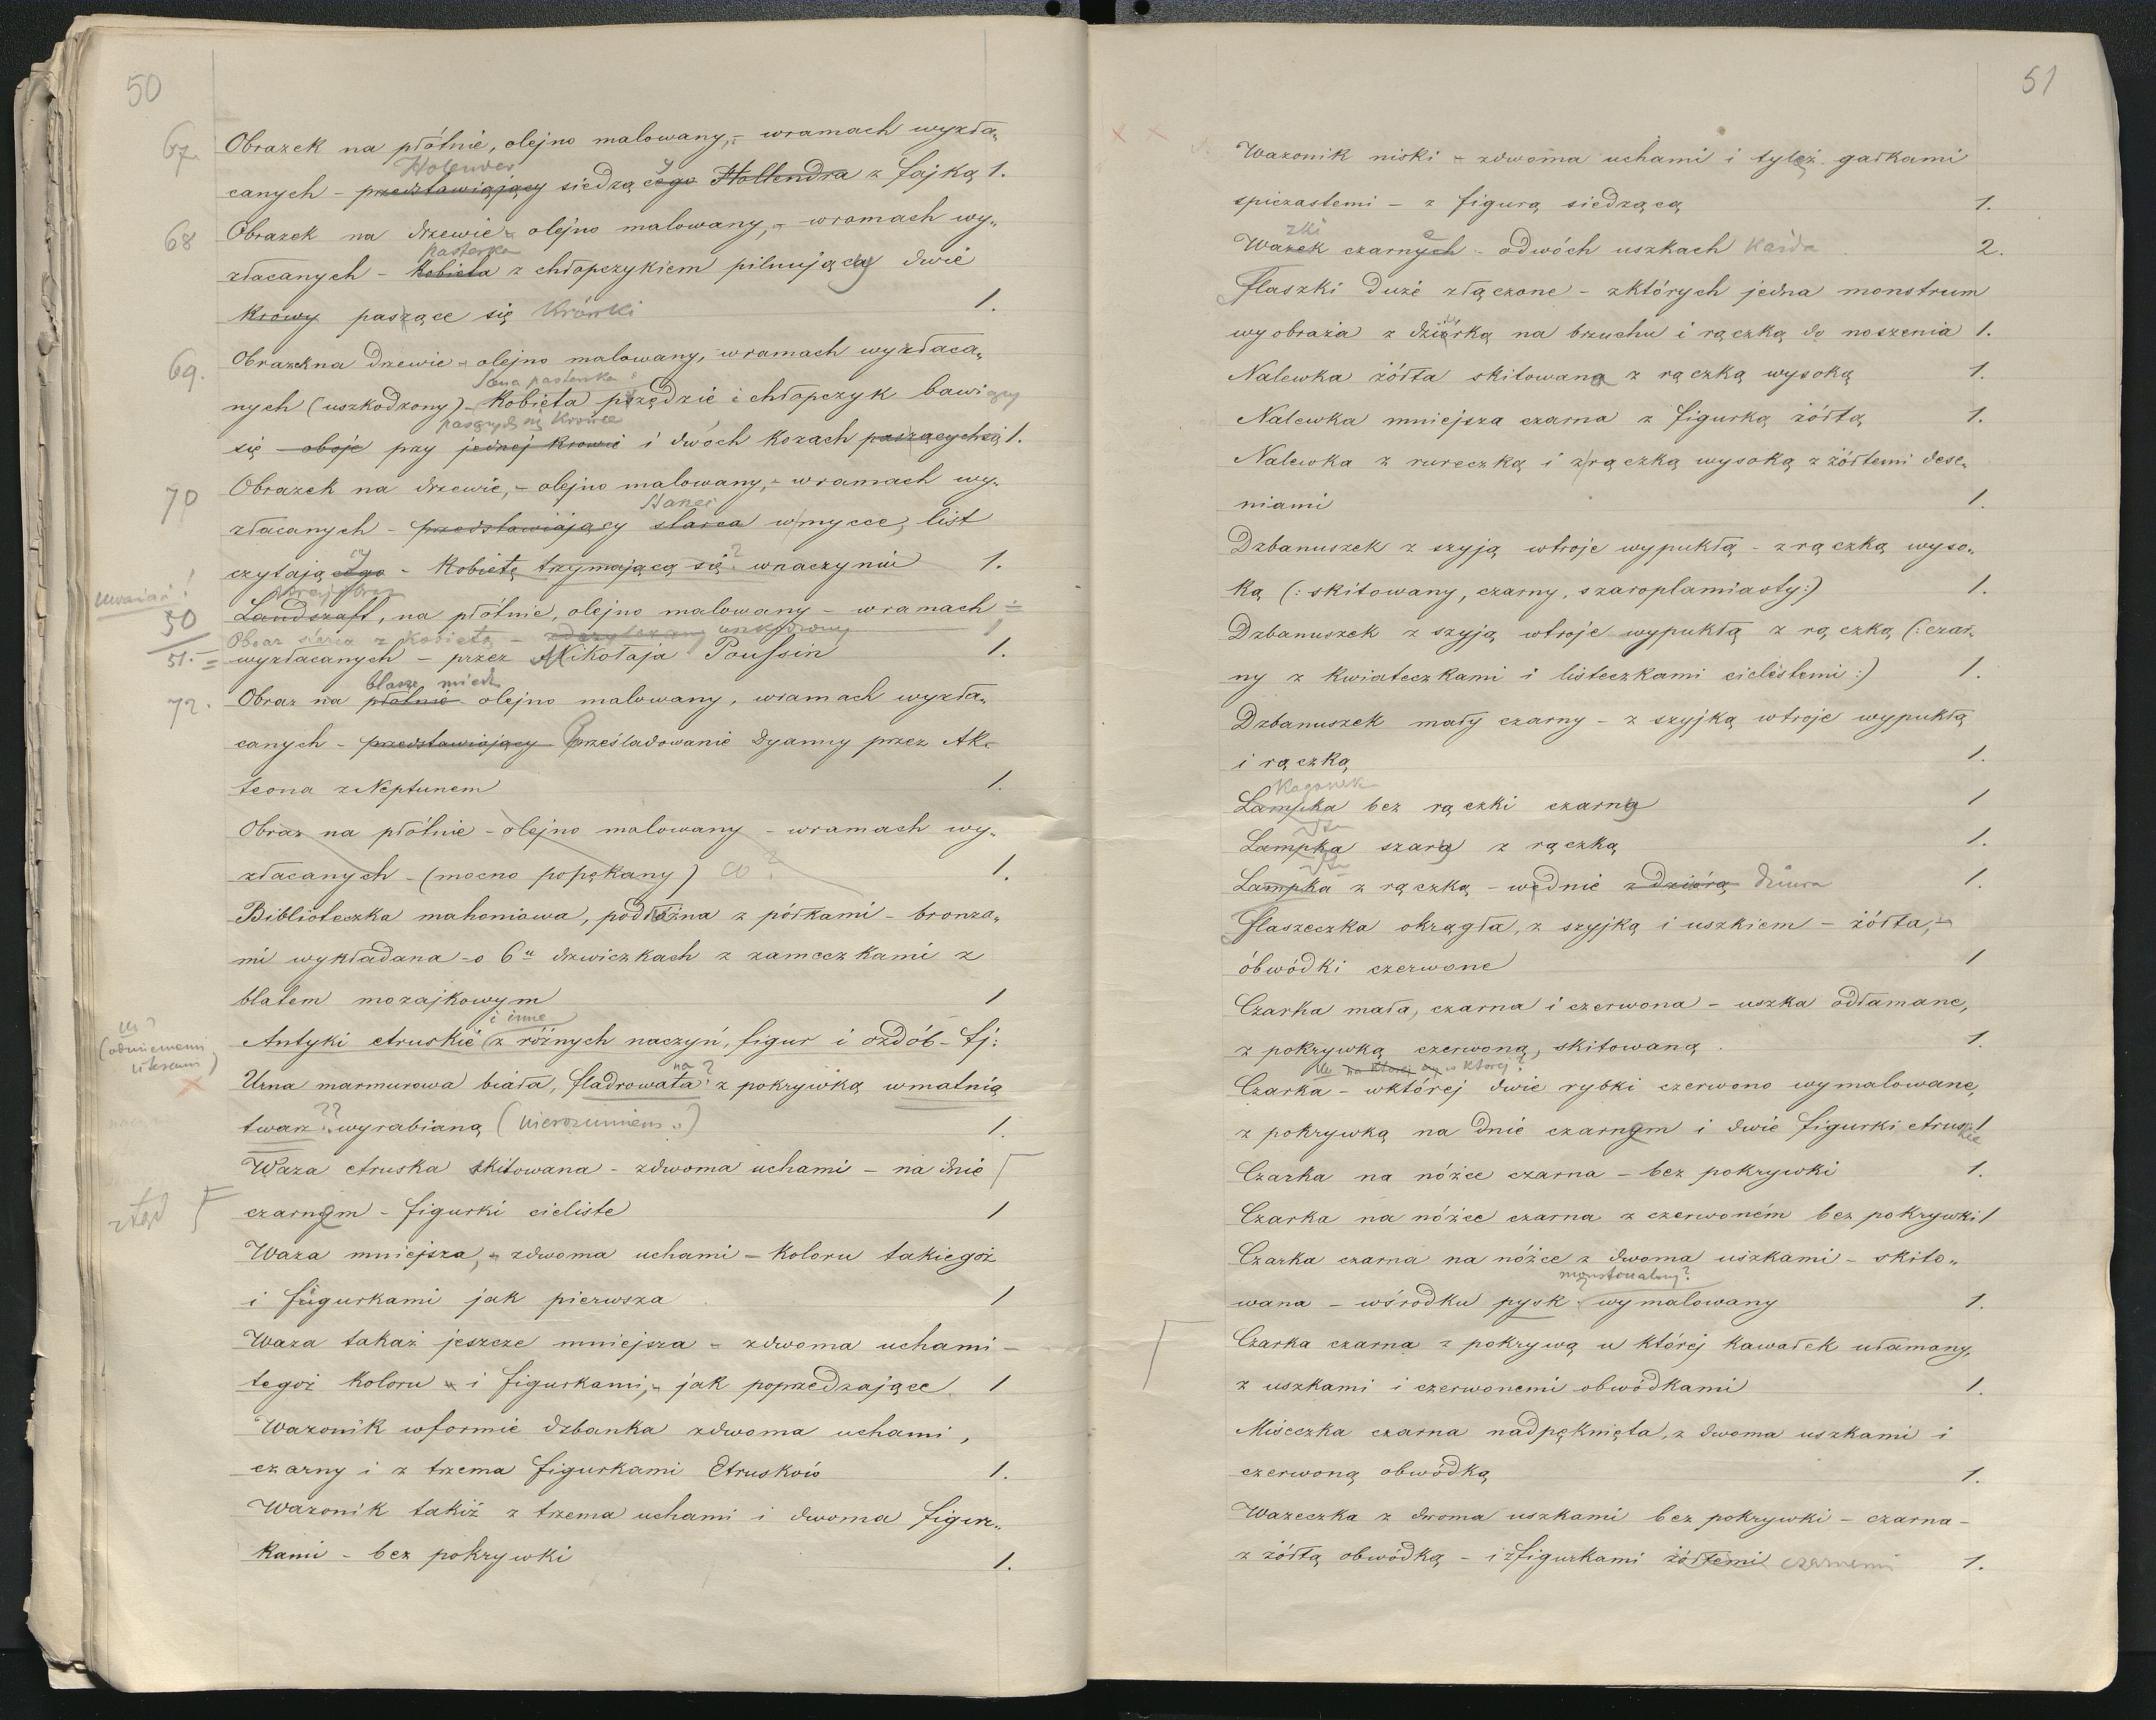 50
67. Obrazek na płótnie, olejno malowany, - wramach wyzła„
Holender
canych - przedstawiający siedzącego Hollendra z fajką 1.
68 Obrazek na drzewie - olejno malowany, - wramach wy„
pasterka
złacanych - Kobieta z chłopczykiem pilnującą dwie
Krowy paszące się Krówki 1.
69. Obrazek na drzewie - olejno malowany, wramach wyzłaca„
pasterka
nych (uszkodzony) - Kobieta przędzie i chłopczyk bawiący
pasących się Krówce
się - oboje przy jednej Krowie i dwóch Kozach paszących się 1.
70 Obrazek na drzewie, - olejno malowany, - wramach wy„
Starzec
złacanych - przedstawiający starca w mycce, list
czytającego - Kobietę trzymającą się? wnaczyniu 1.
uważać!
50 Landszaft, na płótnie, olejno malowany - wramach
51. wyzłacanych - przez Mikołaja Poussin 1.
blasze miedz
72. Obraz na płótnie olejno malowany, wramach wyzła„
canych - przedstawiający Prześladowanie Dyanny przez Ak„
teona z Neptunem 1.
Obraz na płótnie - olejno malowany - wramach wy„
złacanych - (mocno popękany) co? 1.
Biblioteczka mahoniowa, podłużna z półkami - bronza„
mi wykładana - o 6u drzwiczkach z zameczkami z
blatem mozajkowym 1
i inne
Antyki etruskie z różnych naczyń, figur i ozdób - tj:
(odmiennemi literami)
na?
Urna marmurowa biała, fladrowata? z pokrywką wmatnią
twarz?? wyrabianą (nierozumiem..) 1.
Waza etruska skitowana - zdwoma uchami - na dnie
ztąd czarnym - figurki cieliste 1
Waza mniejsza, - zdwoma uchami - Koloru takiegoż
i figurkami jak pierwsza 1
Waza takaż jeszcze mniejsza - zdwoma uchami -
tegoż Koloru - i figurkami, - jak poprzedzające 1
Wazonik wformie dzbanka zdwoma uchami,
czarny i z trzema figurkami Etrusków 1.
Wazonik takiż z trzema uchami i dwoma figur„
kami - bez pokrywki 1.
51
Wazonik niski - zdwoma uchami i tyleż gałkami
spiczastemi - z figurą siedzącą 1.
zki
Wazek czarnych - odwóch uszkach Każda 2.
Flaszki duże złączone - zktórych jedna monstrum
wyobraża z dziurką na brzuchu i rączką do noszenia 1.
Nalewka żółta skitowana z rączką wysoką 1.
Nalewka mniejsza czarna z figurką żółtą 1.
Nalewka z rureczką i z rączką wysoką z żółtemi dese„
niami 1.
Dzbanuszek z szyją wtroje wypukłą - z rączką wyso„
ką (: skitowany, czarny, szaroplamiasty :) 1.
Dzbanuszek z szyją wtroje wypukłą z rączką (: czar„
ny z kwiateczkami i listeczkami cielistemi :) 1.
Dzbanuszek mały czarny - z szyjką wtroje wypukłą
i rączką 1.
Kaganek
Lampka bez rączki czarna 1
Lampka szara z rączką 1.
Lampka z rączką - wednie z dziórą dziura 1.
Flaszeczka okrągła, z szyjką i uszkiem - żółta, -
óbwódki czerwone 1
Czarka mała, czarna i czerwona - uszka odłamane,
z pokrywką czerwoną, skitowaną 1.
na której czy w której?
Czarka - wktórej dwie rybki czerwono wymalowane,
z pokrywką na dnie czarnym i dwie figurki etruskie 1
Czarka na nóżce czarna - bez pokrywki 1.
Czarka na nóżce czarna z czerwoném bez pokrywki 1
Czarka czarna na nóżce z dwoma uszkami - skito„
wana - wśrodku pysk wymalowany 1.
Czarka czarna z pokrywą u której kawałek ułamany,
z uszkami i czerwonemi obwódkami 1.
Miseczka czarna nadpęknięta, z dwoma uszkami i
czerwoną obwódką 1.
Wazeczka z dwoma uszkami bez pokrywki - czarna -
z żółtą obwódką - i z figurkami żółtemi czarnemi 1.